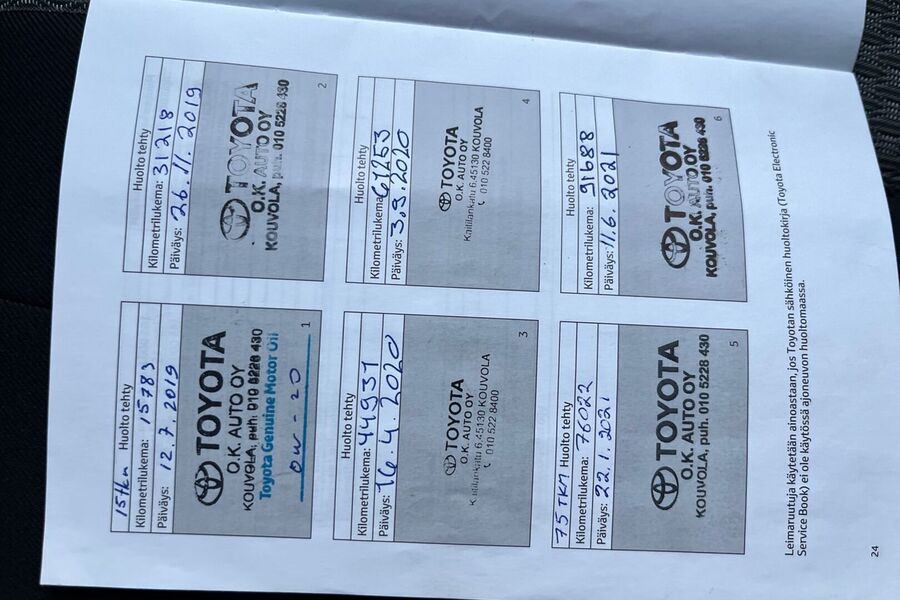 15tkm Huolto tehty
Kilometrilukema: 15783
Päiväys: 12.7.2019
TOYOTA
O.K. AUTO OY
KOUVOLA, puh. 010 5228 430
Toyota Genuine Motor Oil
0W-20
1
Huolto tehty
Kilometrilukema: 31218
Päiväys: 26.11.2019
TOYOTA
O.K. AUTO OY
KOUVOLA, puh. 010 5228 430
2
Huolto tehty
Kilometrilukema: 44931
Päiväys: 16.4.2020
TOYOTA
O.K. AUTO OY
Kaitilankatu 6, 45130 KOUVOLA
010 522 8400
3
Huolto tehty
Kilometrilukema: 61253
Päiväys: 3.9.2020
TOYOTA
O.K. AUTO OY
Kaitilankatu 6, 45130 KOUVOLA
010 522 8400
4
75 TKM Huolto tehty
Kilometrilukema: 76022
Päiväys: 22.1.2021
TOYOTA
O.K. AUTO OY
KOUVOLA, puh. 010 5228 430
5
Huolto tehty
Kilometrilukema: 91688
Päiväys: 11.6.2021
TOYOTA
O.K. AUTO OY
KOUVOLA, puh. 010 5228 430
6
Leimaruutuja käytetään ainoastaan, jos Toyotan sähköinen huoltokirja (Toyota Electronic
Service Book) ei ole käytössä ajoneuvon huoltomaassa.
24